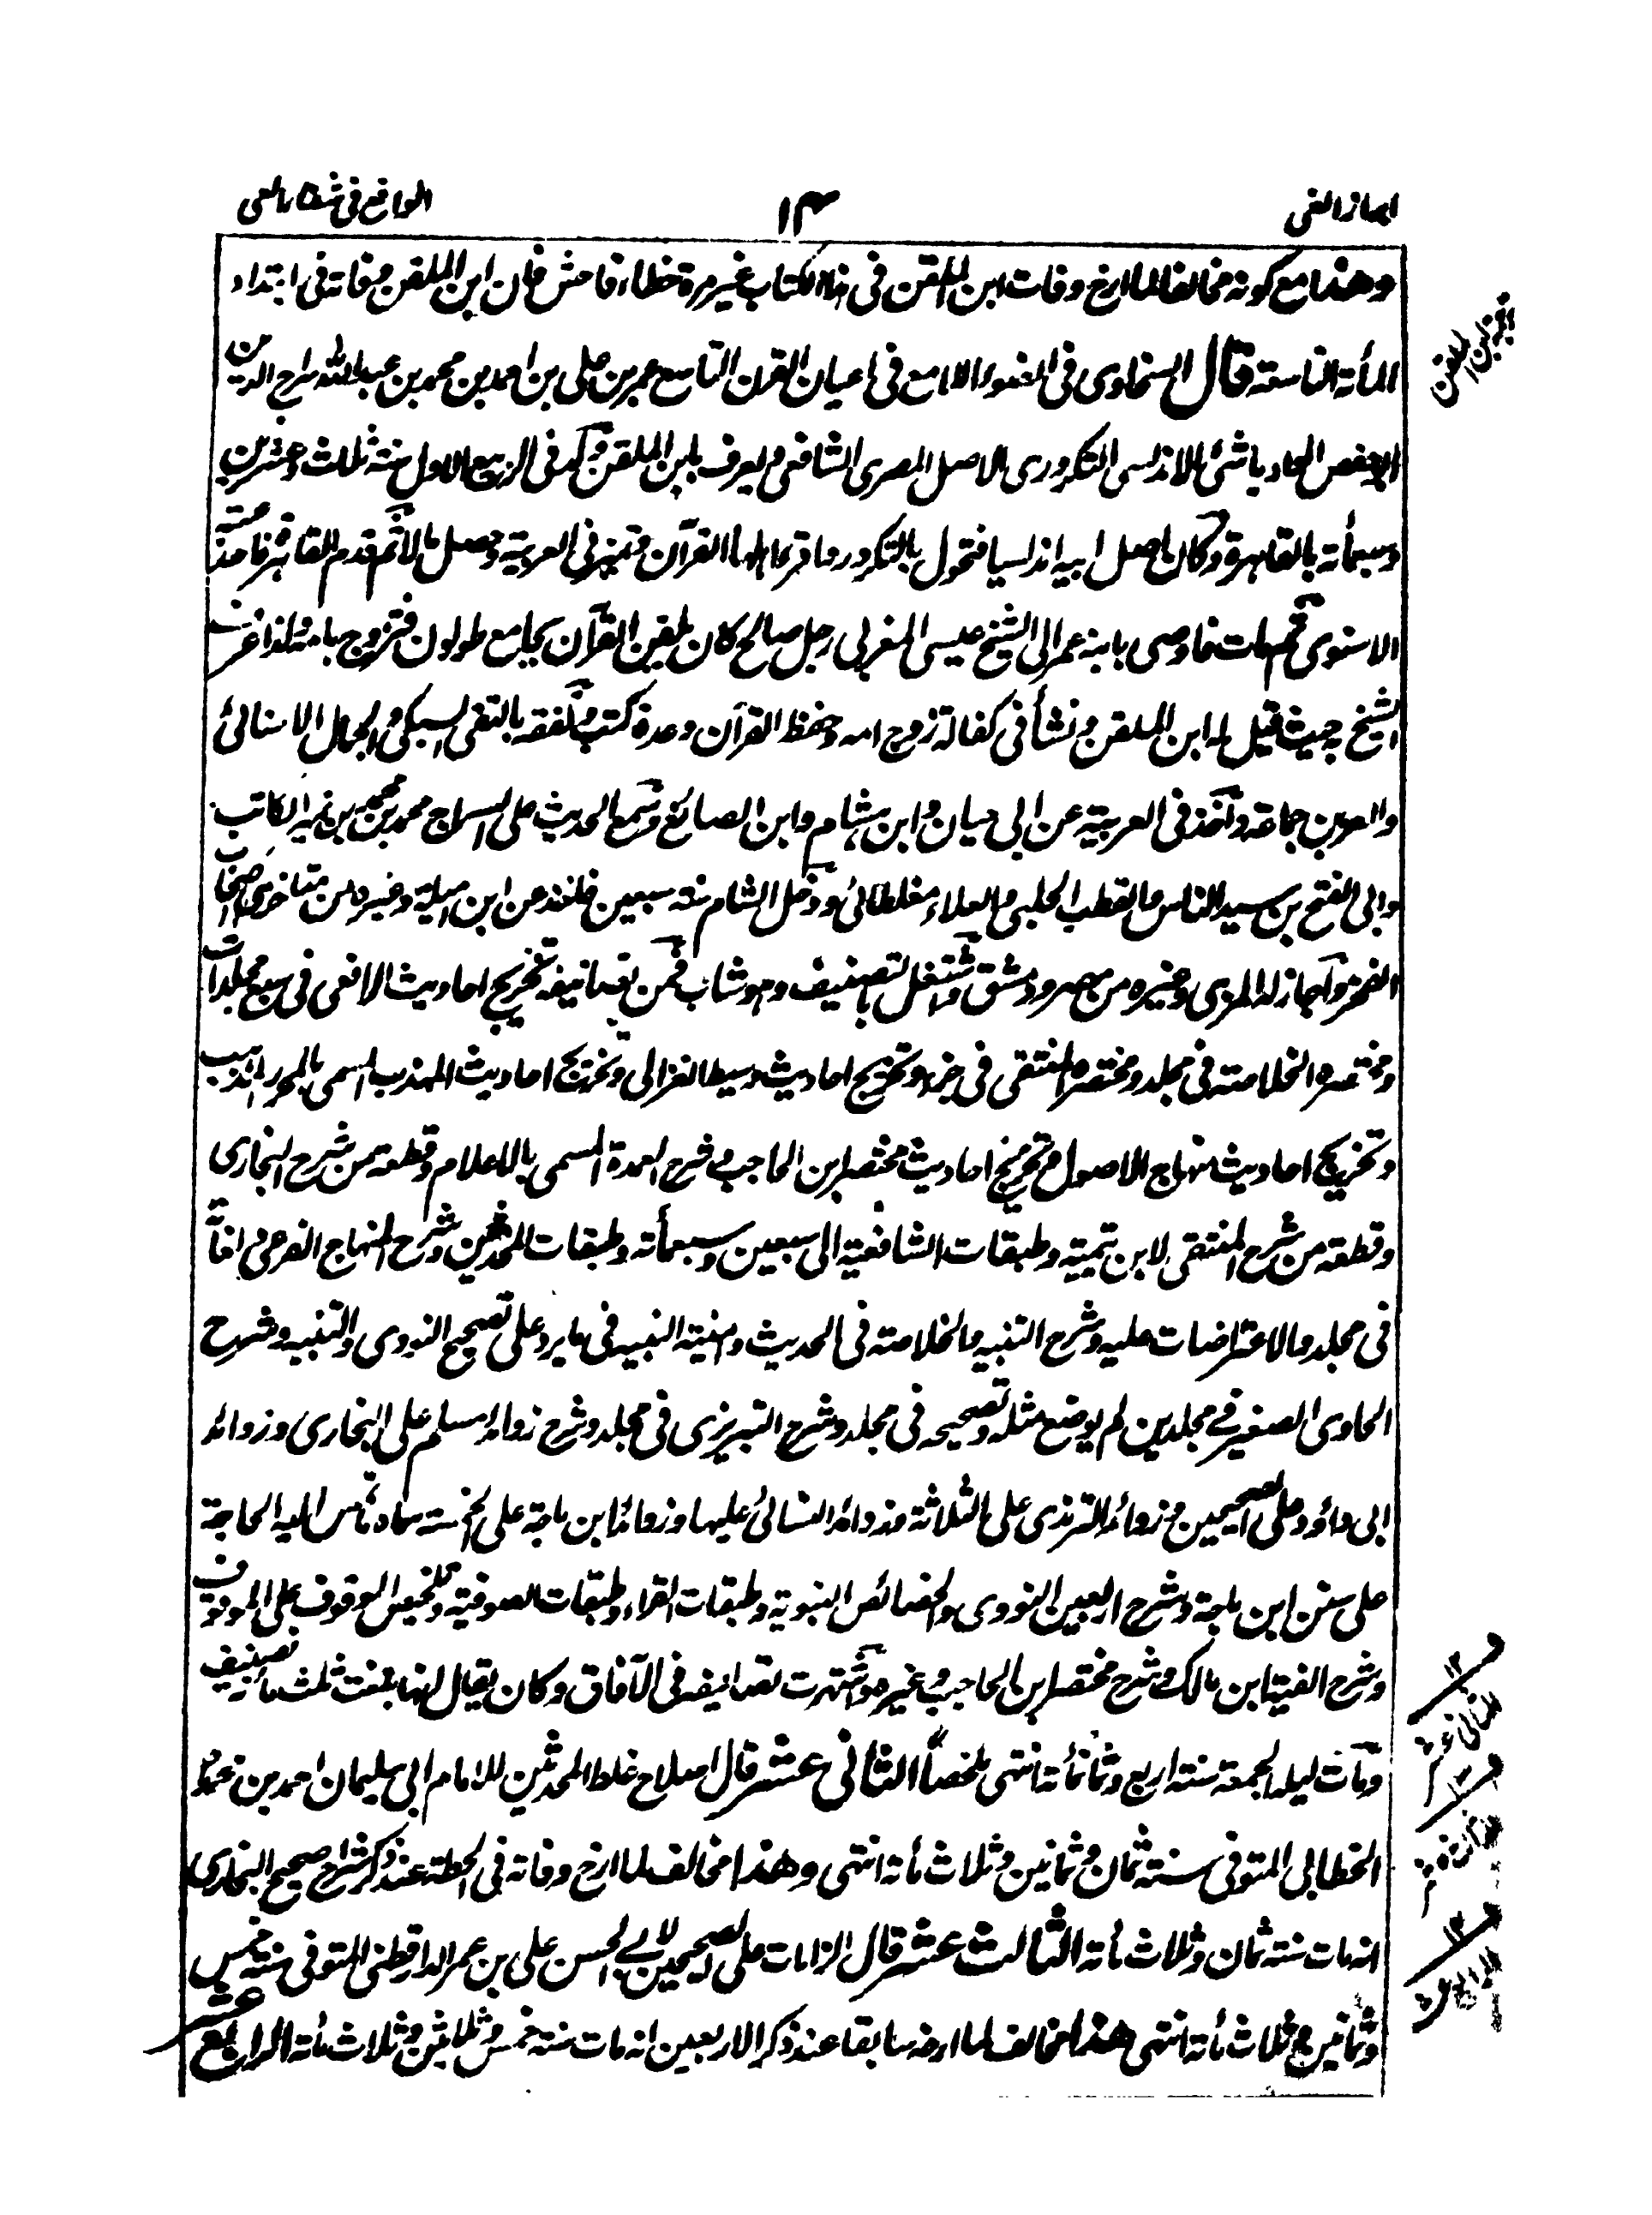 ابراز الغی
١٤
الواقع فی شفاء العی
وهذا مع كونه مخالفا لما ارخ وفات ابن الملقن فی هذا الكتاب غير مرة خطاء فاحش فان ابن الملقن وفاته فی ابتداء
المأة التاسعة قال السخاوی فی الضوء اللامع فی اعيان القرن التاسع عمر بن علی بن احمد بن محمد بن عبد الله سراج الدين
ابو حفص الوادياشی الاندلسی التكروری الاصل المصری الشافعی ويعرف بابن الملقن ولد فی الربيع الاول سنة ثلاث وعشرين
وسبعمأة بالقاهرة وكان اصل ابيه اندلسيا فتحول بالتكرور واقرء اهلها القرآن وتميز فی العربية وحصل مالا ثم قدم القاهرة فاخذ عنه
الاسنوی ثم مات فاوصی بابنه عمر الی الشيخ عيسی المغربی رجل صالح كان يلقن القرآن بجامع طولون فتزوج بامه ولذا عرف
الشيخ بحيث قيل له ابن الملقن ونشأ فی كفالة زوج امه وحفظ القرآن وعدة كتب وتفقه بالتقی السبكی والجمال الاسنائی
والعز بن جماعة واخذ فی العربية عن ابی حيان وابن هشام وابن الصائغ وسمع الحديث علی السراج محمد بن محمد بن نمير الكاتب
وابی الفتح بن سيد الناس والقطب الحلبی والعلاء مغلطائی ودخل الشام سنة سبعين فاخذ عن ابن اميلة وغيره من متاخری اصحاب
الفخر واجاز له المزی وغيره من مصر ودمشق واشتغل بالتصنيف وهو شاب فمن تصانيفه تخريج احاديث الرافعی فی سبع مجلدات
ومختصره الخلاصة فی مجلد ومختصره المنتقی فی جزء وتخريج احاديث وسيط الغزالی وتخريج احاديث المهذب المسمی بالمحرر المذهب
وتخريج احاديث منهاج الاصول وتخريج احاديث مختصر ابن الحاجب وشرح العمدة المسمی بالاعلام وقطعة من شرح البخاری
وقطعة من شرح المنتقی لابن تيمية وطبقات الشافعية الی سبعين وسبعمأة وطبقات المحدثين وشرح المنهاج الفرعی ولغاته
فی مجلد والاعتراضات عليه وشرح التنبيه والخلاصة فی الحديث وامنية النبيه فی ما يرد علی تصحيح النووی والتنبيه وشرح
الحاوی الصغير فے مجلدين لم يوضع مثله وتصحيحه فی مجلد وشرح التبريزی فی مجلد وشرح زوائد مسلم علی البخاری وزوائد
ابی داؤد علی الصحيحين وزوائد الترمذی علی الثلاثة وزوائد النسائی عليها وزوائد ابن ماجة علی الخمسة سماه ما تمس اليه الحاجة
علی سنن ابن ماجة وشرح اربعين النووی والخصائص النبوية وطبقات القراء وطبقات الصوفية وتلخيص الوقوف علی الموقوف
وشرح الفية ابن مالك وشرح مختصر ابن الحاجب وغيره واشتهرت تصانيفه فی الآفاق وكان يقال انها بلغت ثلثمأة تصنيف
ومات ليلة الجمعة سنة اربع وثمانمأة انتهی ملخصاً الثانی عشر قال اصلاح غلط المحدثين للامام ابی سليمان احمد بن محمد
الخطابی المتوفی سنة ثمان وثمانين وثلاث مأة انتهی وهذا مخالف لما ارخ وفاته فی الحطة عند ذكر شراح صحيح البخاری
انه مات سنة ثمان وثلاث مأة الثالث عشر قال الزامات علی الصحيحين لابے الحسن علی بن عمر الدارقطنی المتوفی سنة خمس
وثمانين وثلاث مأة انتهی وهذا مخالف لما ارخه سابقا عند ذكر الاربعين انه مات سنة خمس وثلاثين وثلاث مأة الرابع عشر